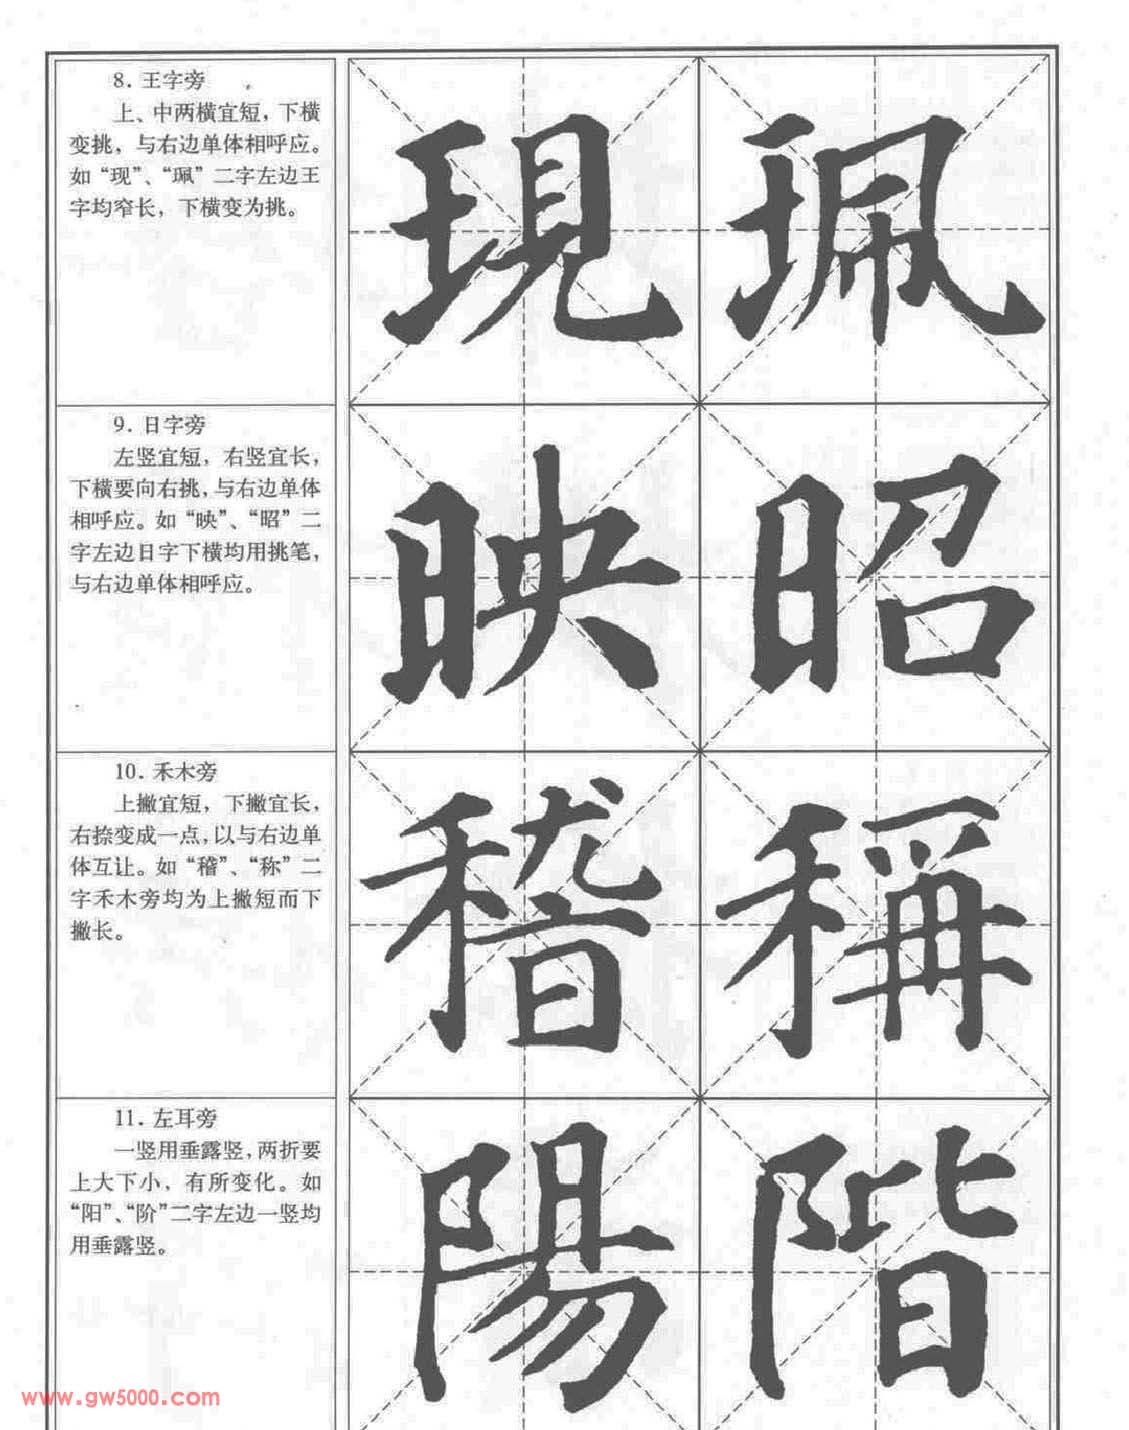 8. 王字旁
上、中两横宜短，下横
变挑，与右边单体相呼应。
如“现”、“珮”二字左边王
字均窄长，下横变为挑。
現 珮
9. 日字旁
左竖宜短，右竖宜长，
下横要向右挑，与右边单体
相呼应。如“映”、“昭”二
字左边日字下横均用挑笔，
与右边单体相呼应。
映 昭
10. 禾木旁
上撇宜短，下撇宜长，
右捺变成一点，以与右边单
体互让。如“稽”、“称”二
字禾木旁均为上撇短而下
撇长。
稽 稱
11. 左耳旁
一竖用垂露竖，两折要
上大下小，有所变化。如
“阳”、“阶”二字左边一竖均
用垂露竖。
陽 階
www.gw5000.com